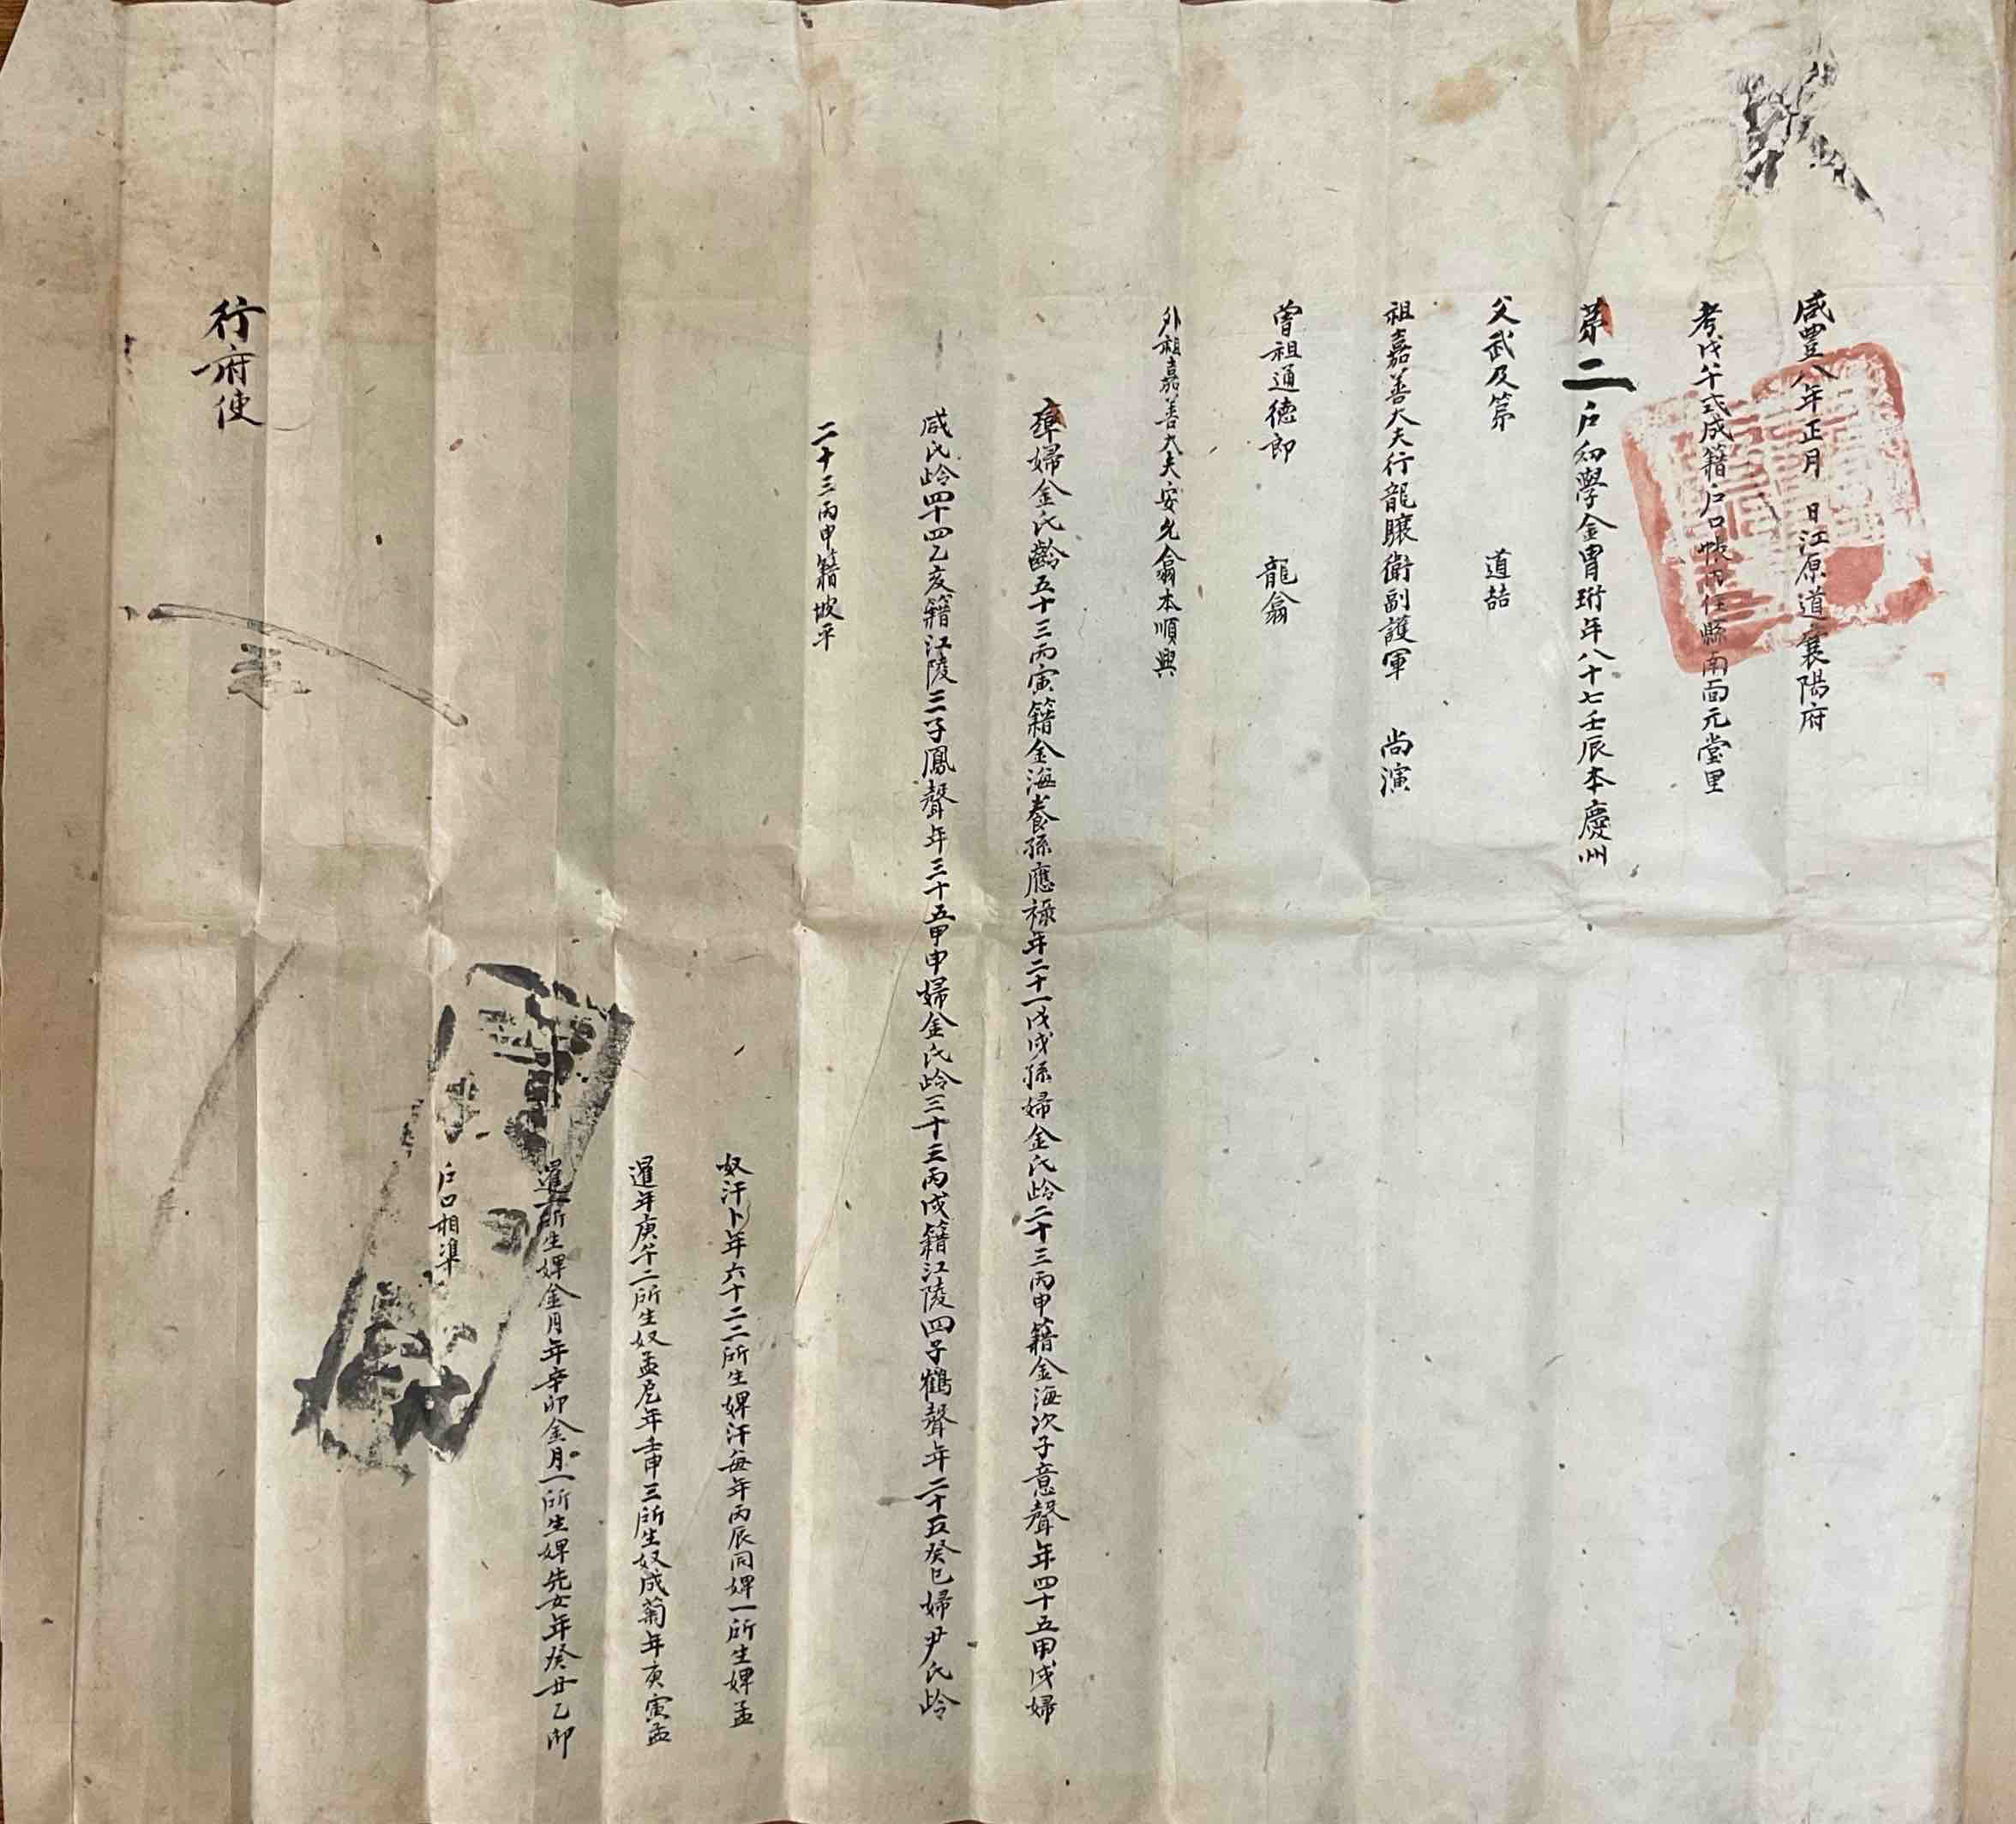 咸豊八年正月 日江原道襄陽府
考戊午式成籍戶口帳內住縣南面元堂里
第二戶幼學金胄珩年八十七壬辰本慶州
父武及第 道喆
祖嘉善大夫行龍驤衛副護軍 尚演
曽祖通德郎 龍翁
外祖嘉善大夫安允翁本順興
孀婦金氏齡五十三丙寅籍金海養孫應祿年二十一戊戌孫婦金氏齢二十三丙申籍金海次子意聲年四十五甲戌婦
咸氏齢四十四乙亥籍江陵三子鳳聲年三十五甲申婦金氏齢三十三丙戌籍江陵四子鶴聲年二十五癸巳婦尹氏齢
二十三丙申籍坡平
奴汗卜年六十二二所生婢汗每年丙辰同婢一所生婢孟
暹年庚午二所生奴孟尼年壬申三所生奴成菊年庚寅孟
暹一所生婢金月年辛卯金月一所生婢先女年癸丑乙卯
戶口相準
行府使